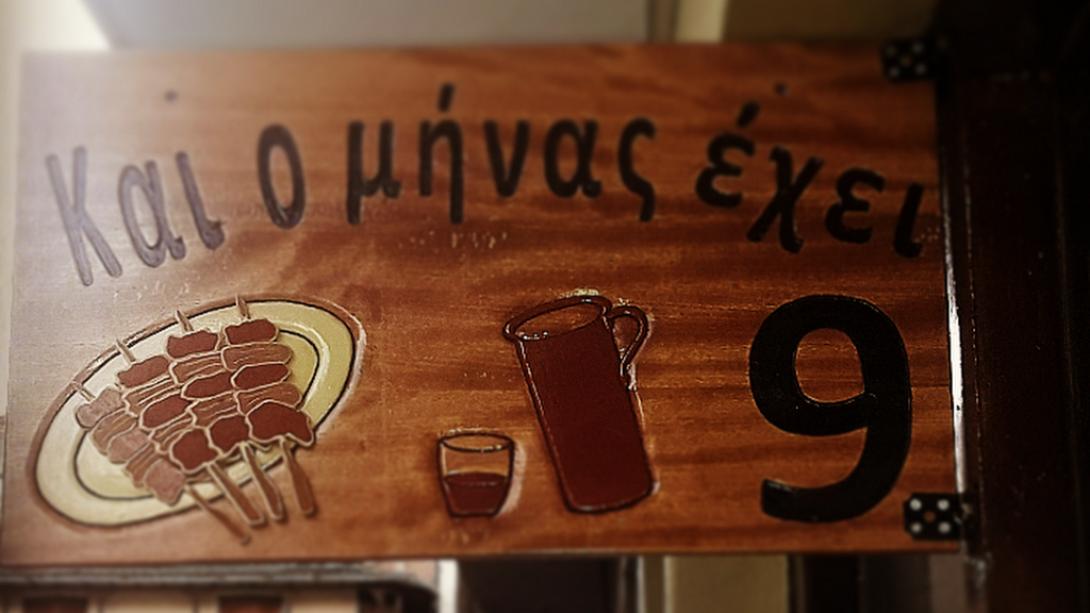 Και ο μήνας έχει
9